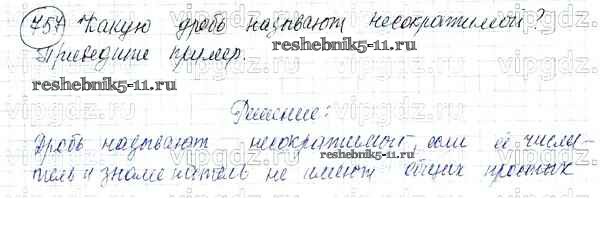 757 Какую дробь называют несократимой?
Приведите пример.
reshebnik5-11.ru
reshebnik5-11.ru
Решение:
Дробь называют несократимой, если её числи-
reshebnik5-11.ru
тель и знаменатель не имеют общих простых